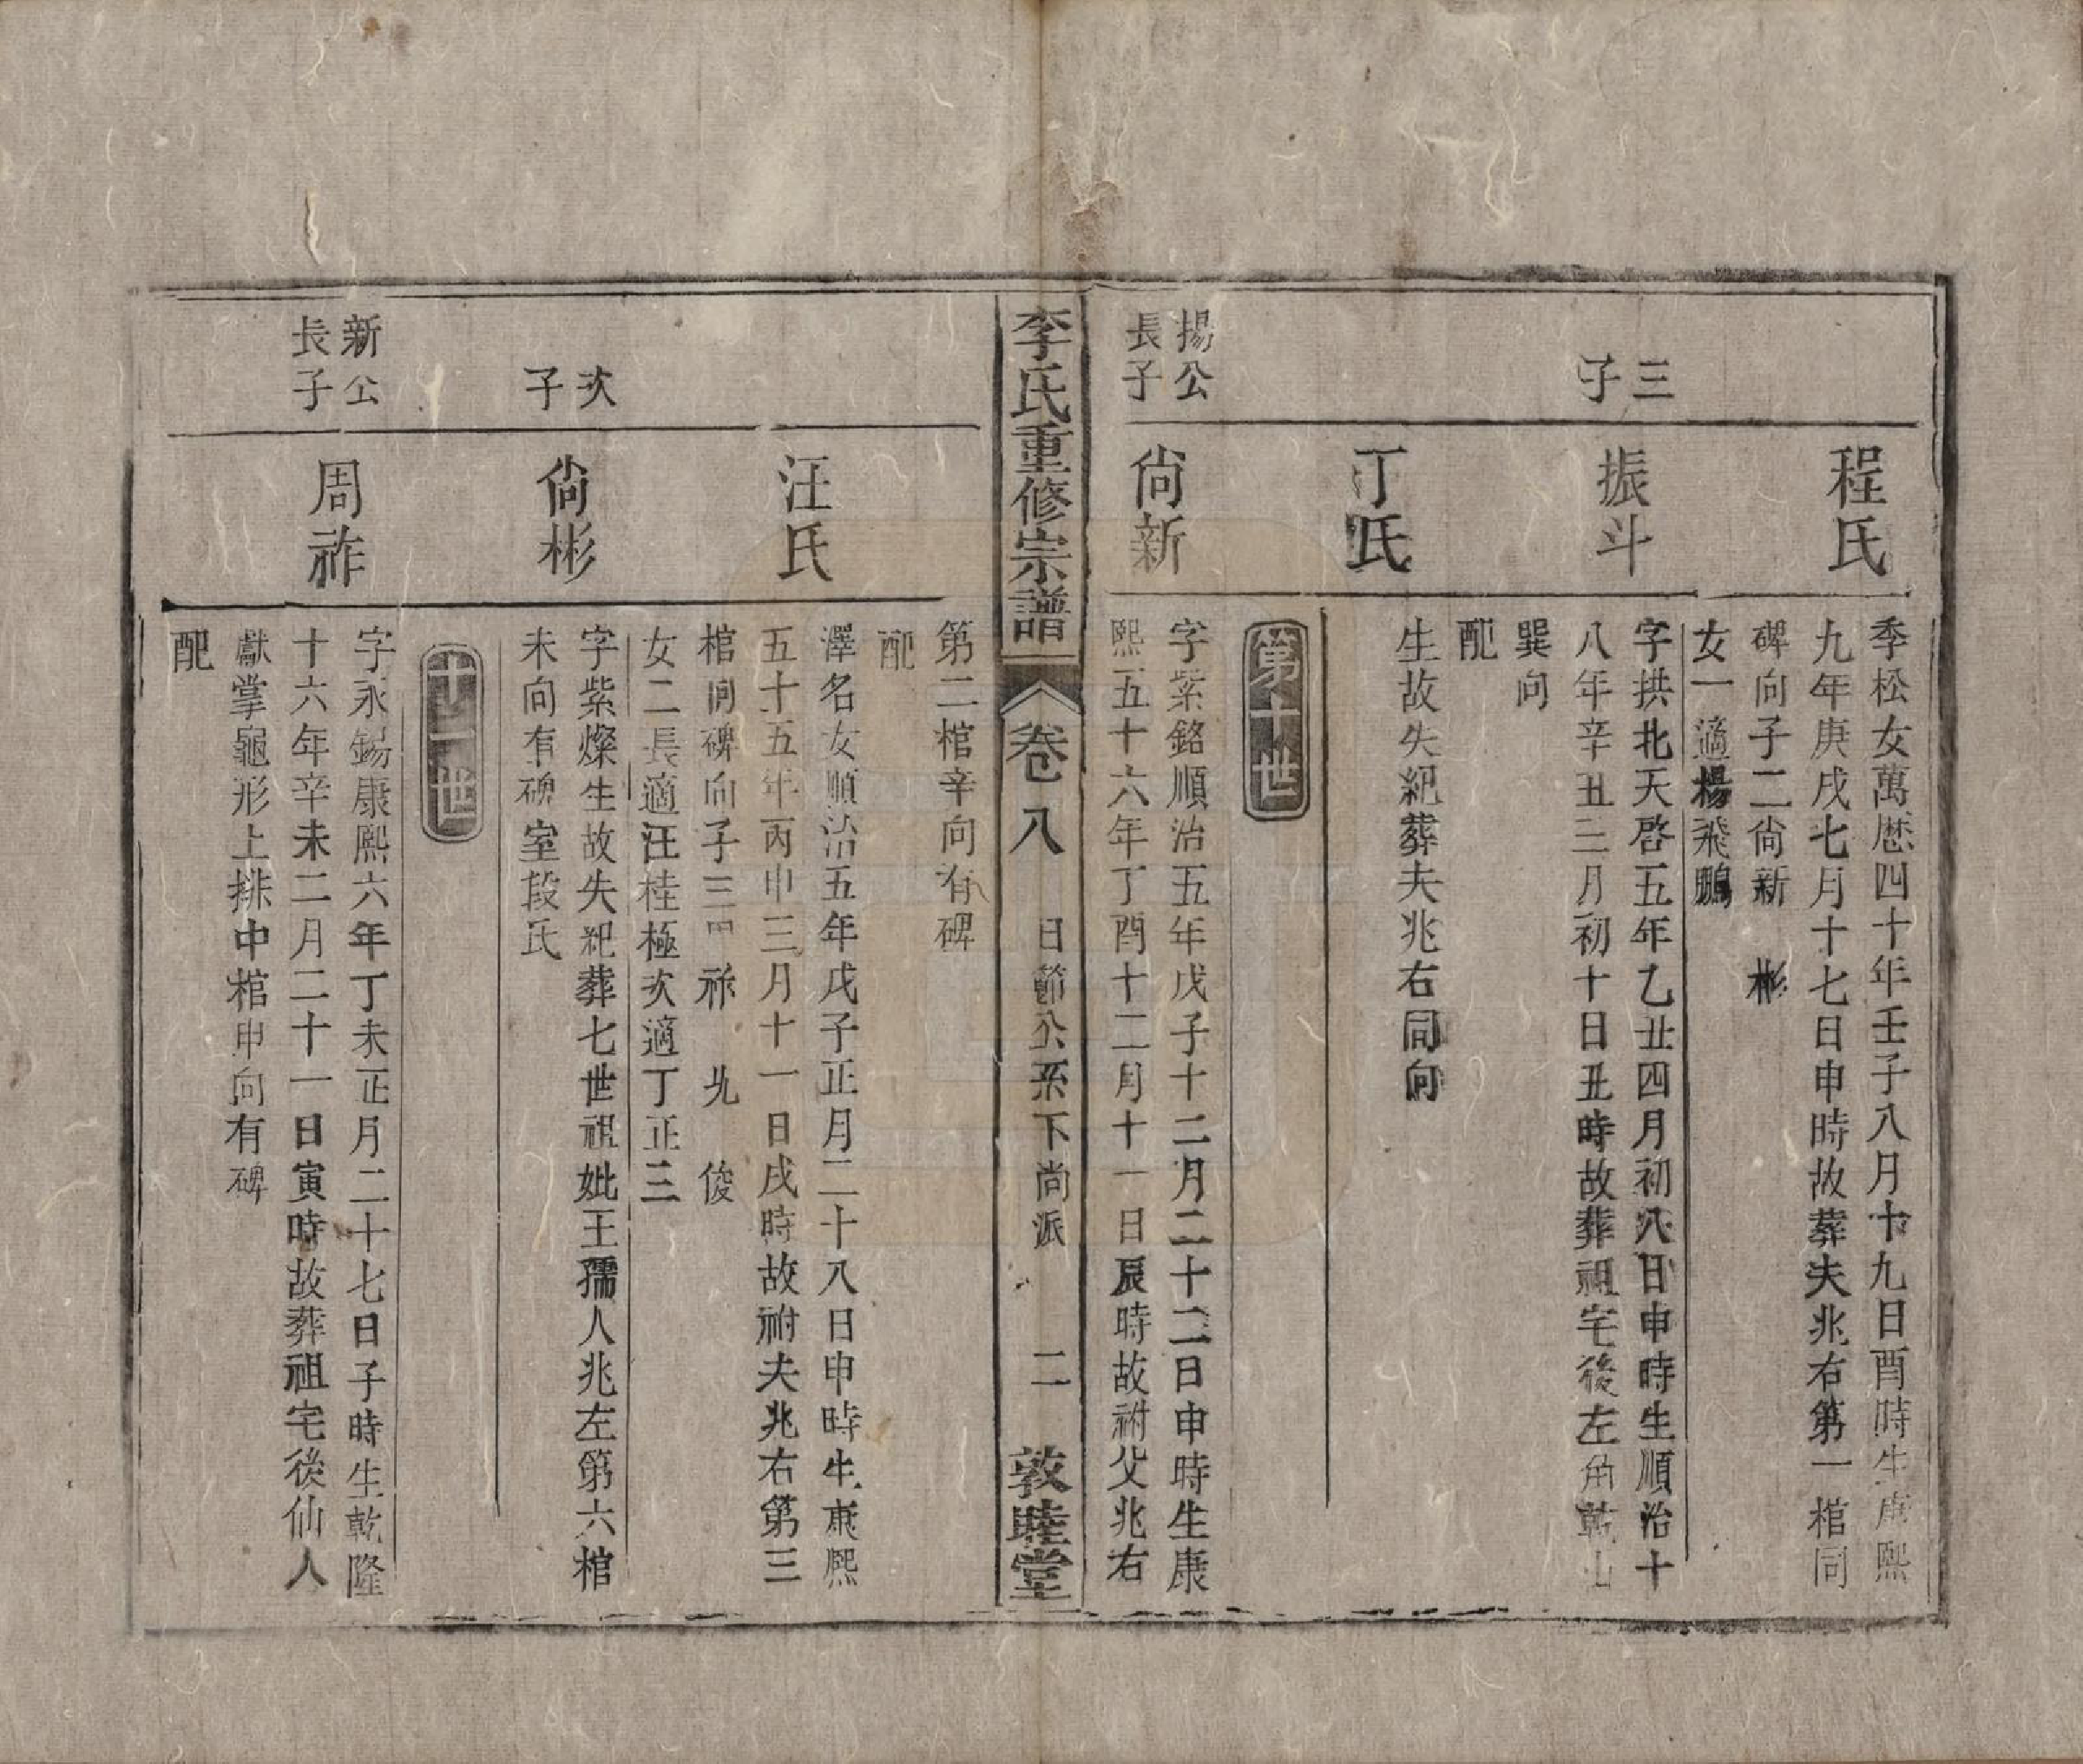 程氏
季松女萬歴四十年壬子八月十九日酉時生康熙
九年庚戌七月十七日申時故葬夫兆右第一棺同
碑向子二尙新　彬
女一適楊飛鵬
三
子
振斗
字拱北天啓五年乙丑四月初八日申時生順治十
八年辛丑三月初十日丑時故葬祖宅後左角乾山
巽向
配
丁氏
生故失紀葬夫兆右同向
第十世
揚公
長子
尙新
字紫銘順治五年戊子十二月二十二日申時生康
熙五十六年丁酉十二月十一日辰時故祔父兆右
李氏重修宗譜
卷八
日節公系下尚派
二
敦睦堂
第二棺辛向有碑
配
汪氏
澤名女順治五年戊子正月二十八日申時生康熙
五十五年丙申三月十一日戌時故祔夫兆右第三
棺同碑向子三周祚　　俊
女二長適汪桂極次適丁正三
次
子
尙彬
字紫燦生故失紀葬七世祖妣王孺人兆左第六棺
未向有碑室段氏
十一世
新公
長子
周祚
字永錫康熙六年丁未正月二十七日子時生乾隆
十六年辛未二月二十一日寅時故葬祖宅後仙人
獻掌龜形上排中棺申向有碑
配